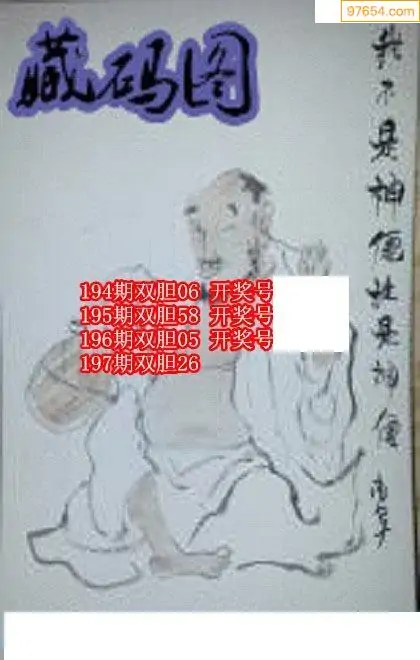 97654.com
藏码图
我不是神便壮是神便
194期双胆06 开奖号
195期双胆58 开奖号
196期双胆05 开奖号
197期双胆26